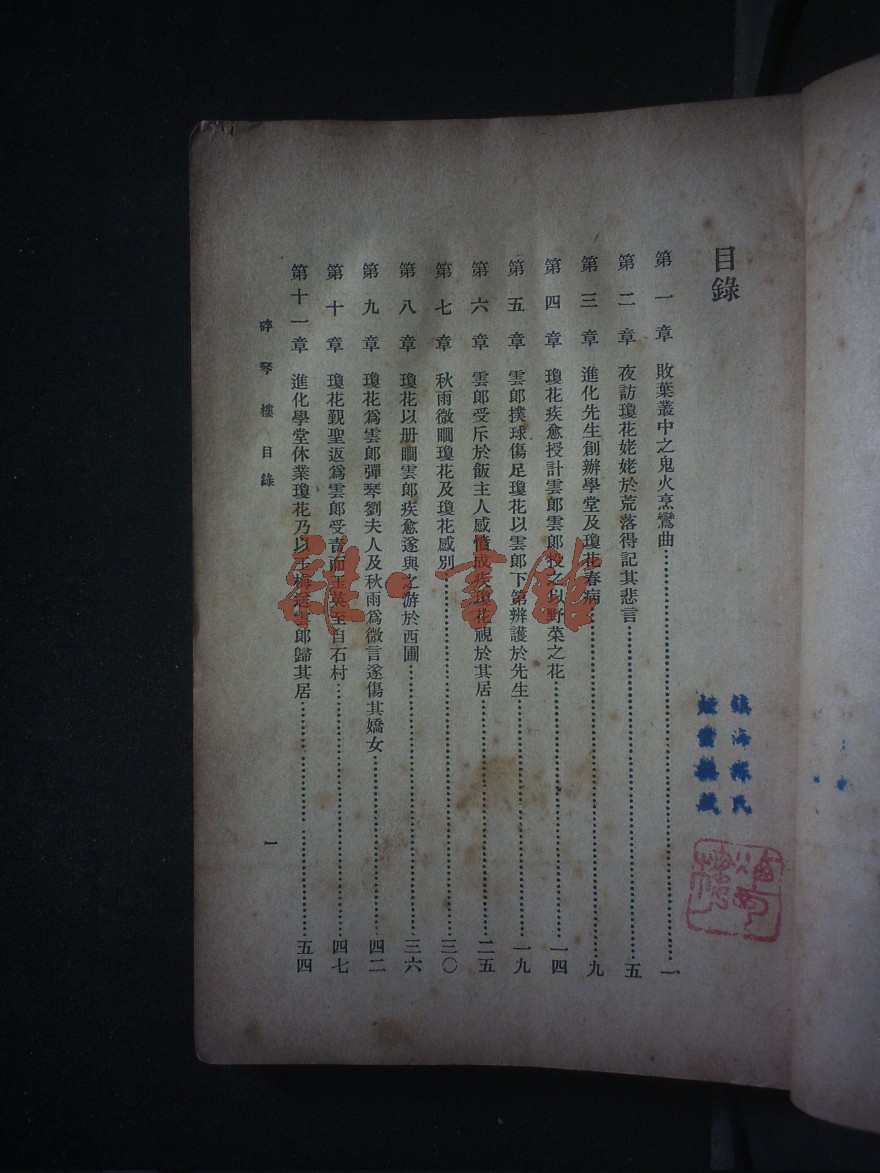 目錄
第一章 敗葉叢中之鬼火烹鸞曲 一
第二章 夜訪瓊花姥姥於荒落得記其悲言 五
第三章 進化先生創辦學堂及瓊花春病 九
第四章 瓊花疾愈授計雲郎雲郎投之以野菜之花 一四
第五章 雲郎撲球傷足瓊花以雲郎下第辨護於先生 一九
第六章 雲郎受斥於飯主人感憤成疾瓊花視於其居 二五
第七章 秋雨微瞷瓊花及瓊花感別 三〇
第八章 瓊花以册瞷雲郎疾愈遂與之游於西圃 三六
第九章 瓊花爲雲郎彈琴劉夫人及秋雨爲微言遂傷其嬌女 四二
第十章 瓊花觀聖返爲雲郎受責而玉英至白石村 四七
第十一章 進化學堂休業瓊花乃以玉梅送雲郎歸其居 五四
碎琴樓 目錄
一
鎮海
氏
藏
雜·書館